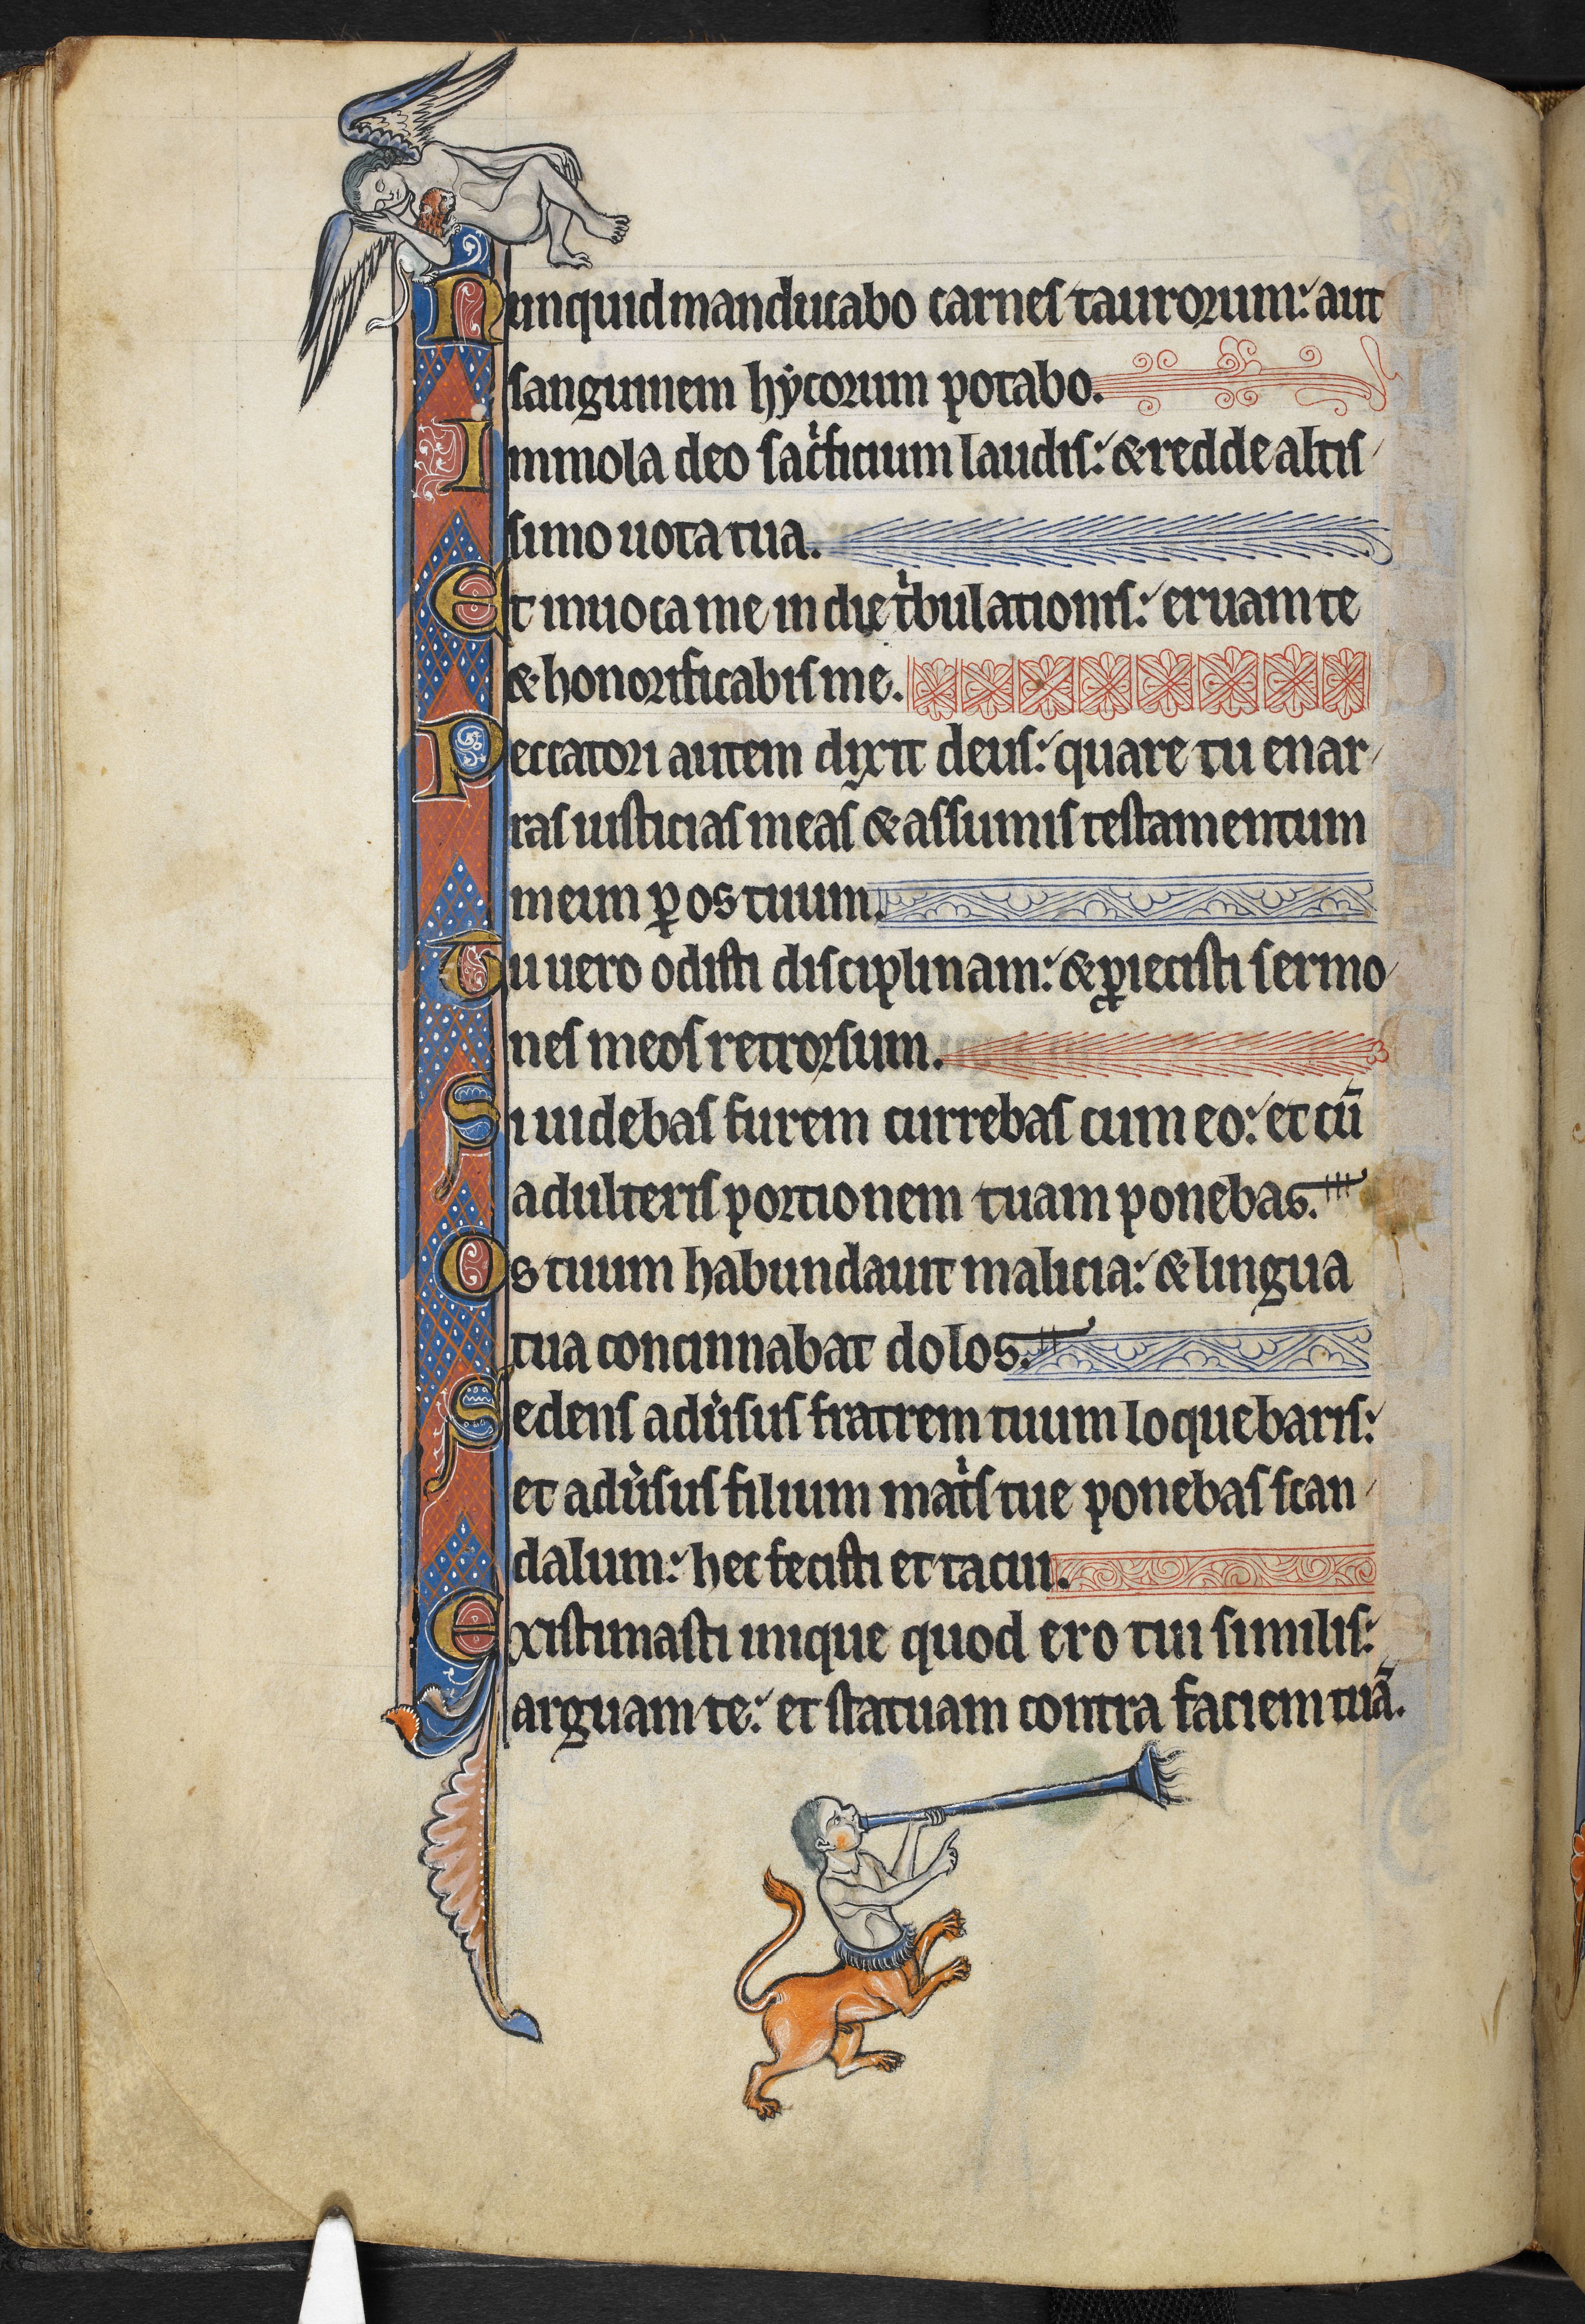 Nunquid manducabo carnes taurorum: aut
sanguinem hẏrcorum potabo.
Immola deo sac͛ificium laudis: & redde altis
simo uota tua.
Et inuoca me in die t͛bulationis: eruam te
& honorificabis me.
Peccatori autem dixit deus: quare tu enar
ras iusticias meas & assumis testamentum
meum ꝑ os tuum.
Tu uero odisti disciplinam: & ꝓiecisti sermo
nes meos retrorsum.
Si uidebas furem currebas cum eo: et cū
adulteris portionem tuam ponebas.
Os tuum habundauit malicia: & lingua
tua concinnabat dolos.
Sedens adu͛sus fratrem tuum loquebaris:
et adu͛sus filium mat͛s tue ponebas scan
dalum: hec fecisti et tacui.
Existimasti inique quod ero tui similis:
arguam te: et statuam contra faciem tuā.